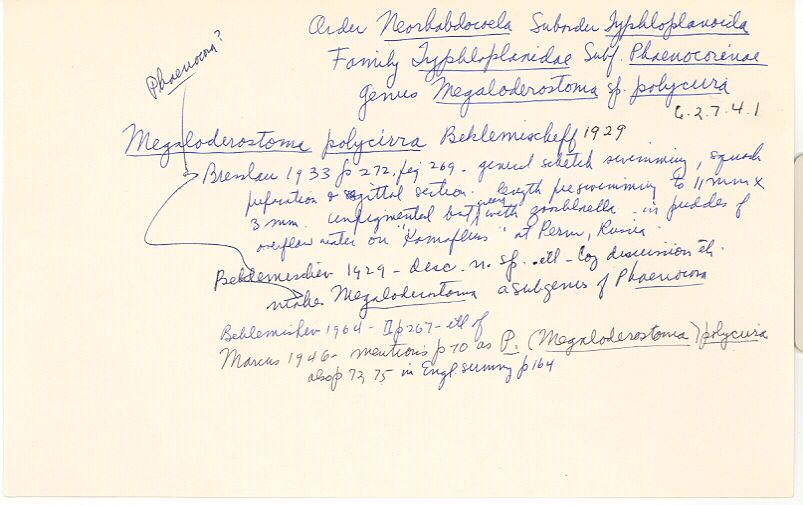 Order Neorhabdocoela Suborder Typhloplanoida
Family Typhloplanidae Subf. Phaenocorinae
Genus Megaloderostoma sp. polycirra
6.2.7.4.1
Phaenocora?
Megaloderostoma polycirra Beklemischeff 1929
Bresslau 1933 p 272, fig 269 - general sketch swimming, squash
preparation & sagittal section. length swimming to 11 mm x
3 mm. unpigmented but green with zoochlorella. in puddles of
overflow water on "Kamaflus" at Perm, Russia
Beklemeschev 1929 - desc. n. sp. ill - discussion etc.
makes Megaloderostoma a subgenus of Phaenocora
Beklemishev 1964 - II p267 - ill of
Marcus 1946 - mentions p 70 as P. (Megaloderostoma) polycirra
also p 72, 75 in Engl. summry p 164